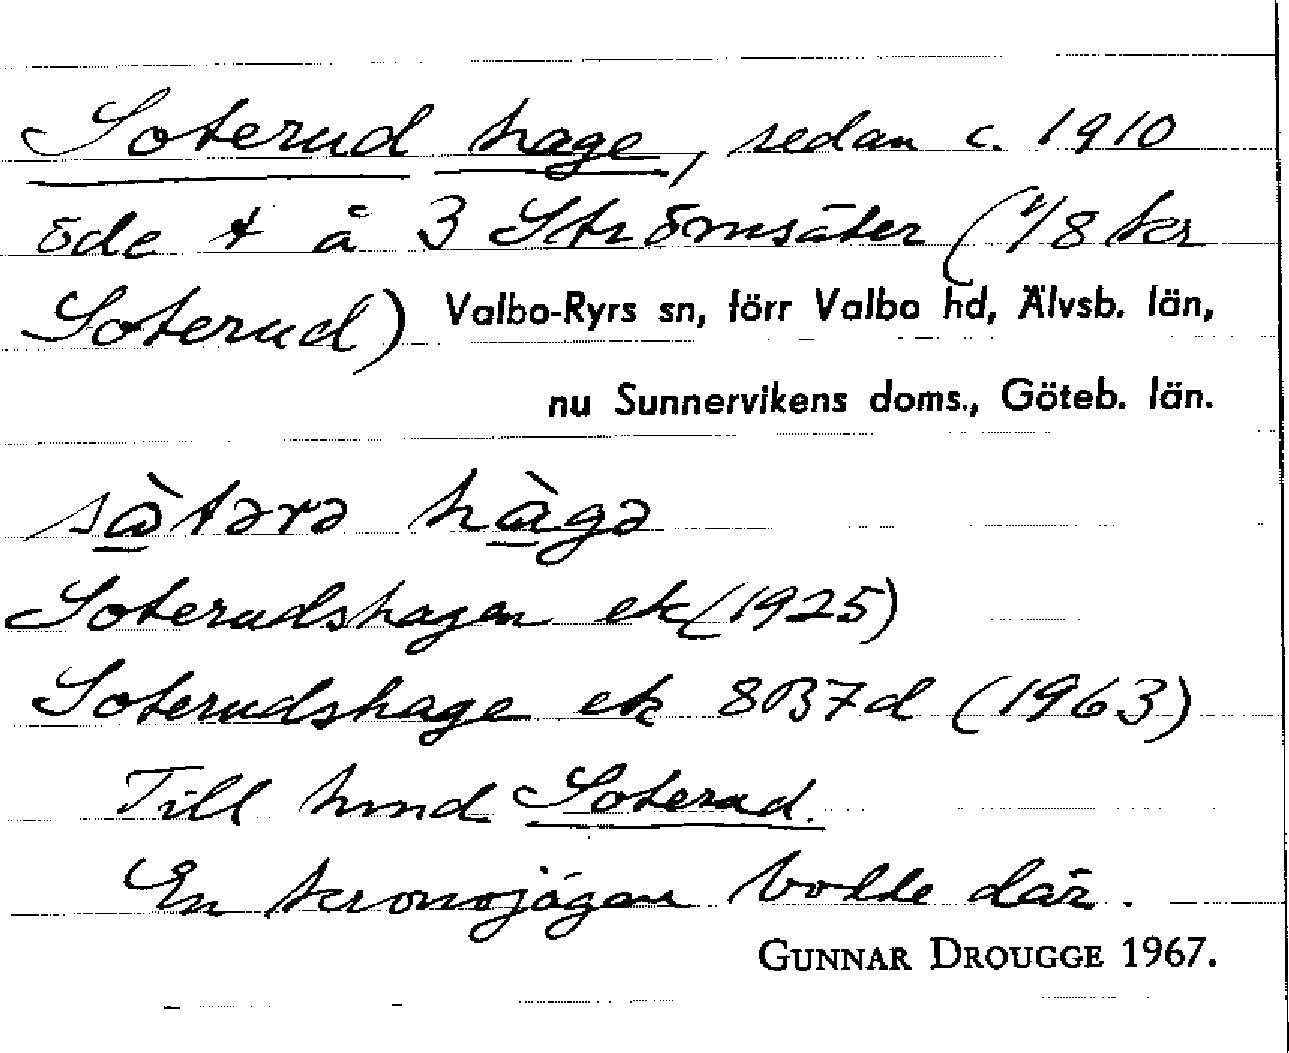 Soterud hage, sedan c. 1910
öde t å 3 Strömsäter (1/8 kr
Soterud) Valbo-Ryrs sn, förr Valbo hd, Älvsb. län,
nu Sunnervikens doms., Göteb. län.
sàtərə hàgə
Soterudshagen ek (1925)
Soterudshage ek 8B7d (1963)
Till hmd Soterud.
En kronojägare bodde där.
GUNNAR DROUGGE 1967.